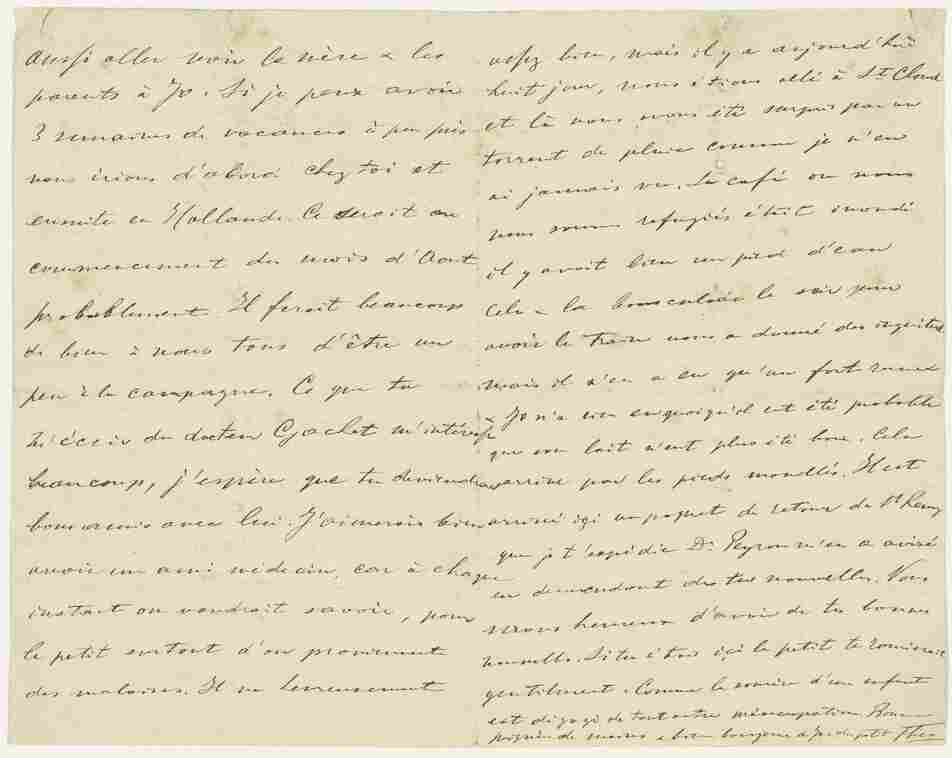 aussi aller voir la mère & les
parents à Jo. Si je peux avoir
3 semaines de vacances à peu près
nous irions d'abord chez toi et
ensuite en Hollande. Ce serait au
commencement du mois d'Aout
probablement. Il ferait beaucoup
de bien à nous tous d'être un
peu à la campagne. Ce que tu
m'écris du docteur Gachet m'intéresse
beaucoup, j'espère que tu deviendras
bons amis avec lui. J'aimerais bien
avoir un ami médecin, car à chaque
instant on voudrait savoir, pour
le petit surtout d'où proviennent
des malaises. Il va heureusement
assez bien, mais il y a aujourd'hui
huit jour, nous étions allé à St Cloud
et là nous avons été surpris par un
torrent de pluie comme je n'en
ai jamais vu. Le café ou nous
nous sommes refugiés était inondé
il y avait bien un pied d'eau
Cela & la bousculade le soir pour
avoir le train nous a donné des inquiétudes
mais il n'en a eu qu'un fort rhume
& Jo n'a rien eu quoiqu'il est été probable
que son lait n'eut plus été bon. Cela
arrive par les pieds mouillés. Il est
arrivé içi un paquet de retour de St Remy
que je t'expédie Dr Peyron m'en a avisé
en demandant de tes nouvelles. Nous
serons heureux d'avoir de tes bonnes
nouvelles. Si tu étais içi le petit te sourirait
gentilment. Comme le sourire d'un enfant
est dégagé de tout autre préoccupation. Bonne
poignée de mains & bien bonjour de Jo & du petit Theo